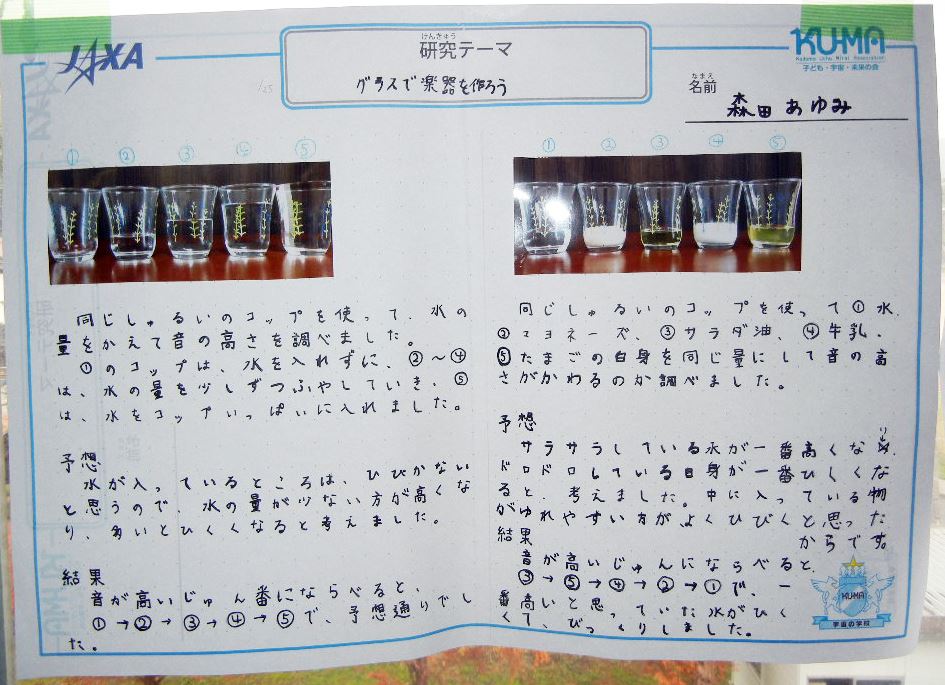 JAXA
けんきゅう
研究テーマ
グラスで楽器を作ろう
KU-MA
Kodomo Uchu Mirai Association
子ども・宇宙・未来の会
なまえ
名前
森田 あゆみ
1/25
① ② ③ ④ ⑤
同じしゅるいのコップを使って、水の
量をかえて音の高さを調べました。
①のコップは、水を入れずに、②～④
は、水の量を少しずつふやしていき、⑤
は、水をコップいっぱいに入れました。
予想
水が入っているところは、ひびかない
と思うので、水の量が少ない方が高くな
り、多いとひくくなると考えました。
結果
音が高いじゅん番にならべると、
①→②→③→④→⑤で、予想通りでし
た。
① ② ③ ④ ⑤
同じしゅるいのコップを使って①水、
②マヨネーズ、③サラダ油、④牛乳、
⑤たまごの白身を同じ量にして音の高
さがかわるのか調べました。
予想
サラサラしている水が一番高くなり、
ドロドロしている白身が一番ひくくな
ると、考えました。中に入っている物
がゆれやすい方がよくひびくと思った
からです。
結果
音が高いじゅんにならべると、
③→⑤→④→②→①で、一
番高いと思っていた水がひく
くて、びっくりしました。
KU-MA
宇宙の学校